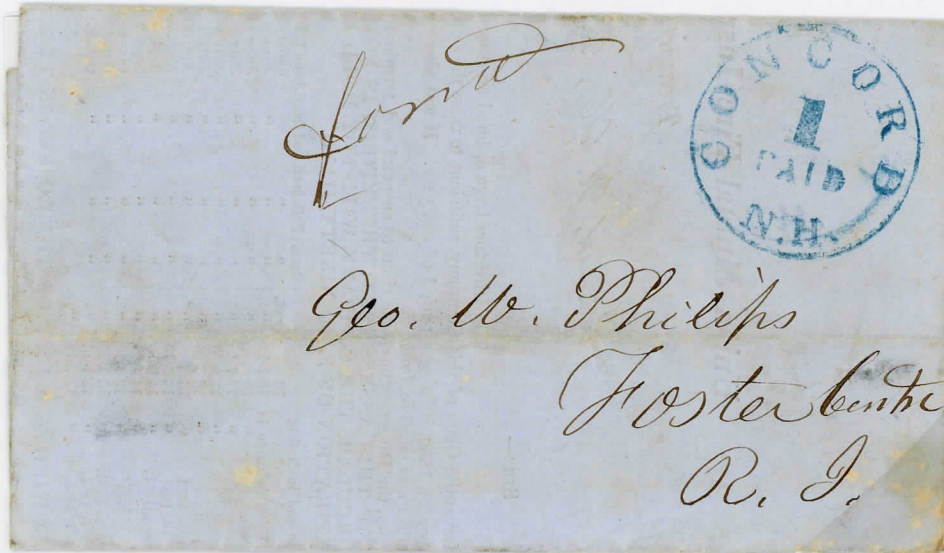 CONCORD
1
PAID
N.H.
Geo. W. Philips
Foster Centre
R. I.